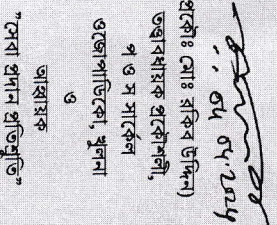 প্রকৌঃ মোঃ রকিব উদ্দিন)
তত্ত্বাবধায়ক প্রকৌশলী,
প ও স সার্কেল
ওজোপাডিকো, খুলনা
ও
আহ্বায়ক
“সেবা প্রদান প্রতিশ্রুতি”